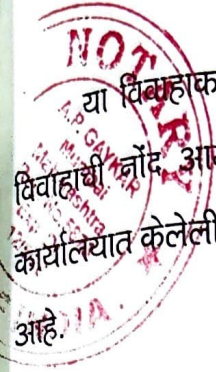 NOTARY
A.P. GAVKAR
या विवाहाक
विवाहाची नोंद आ
कार्यालयात केलेली
आहे.